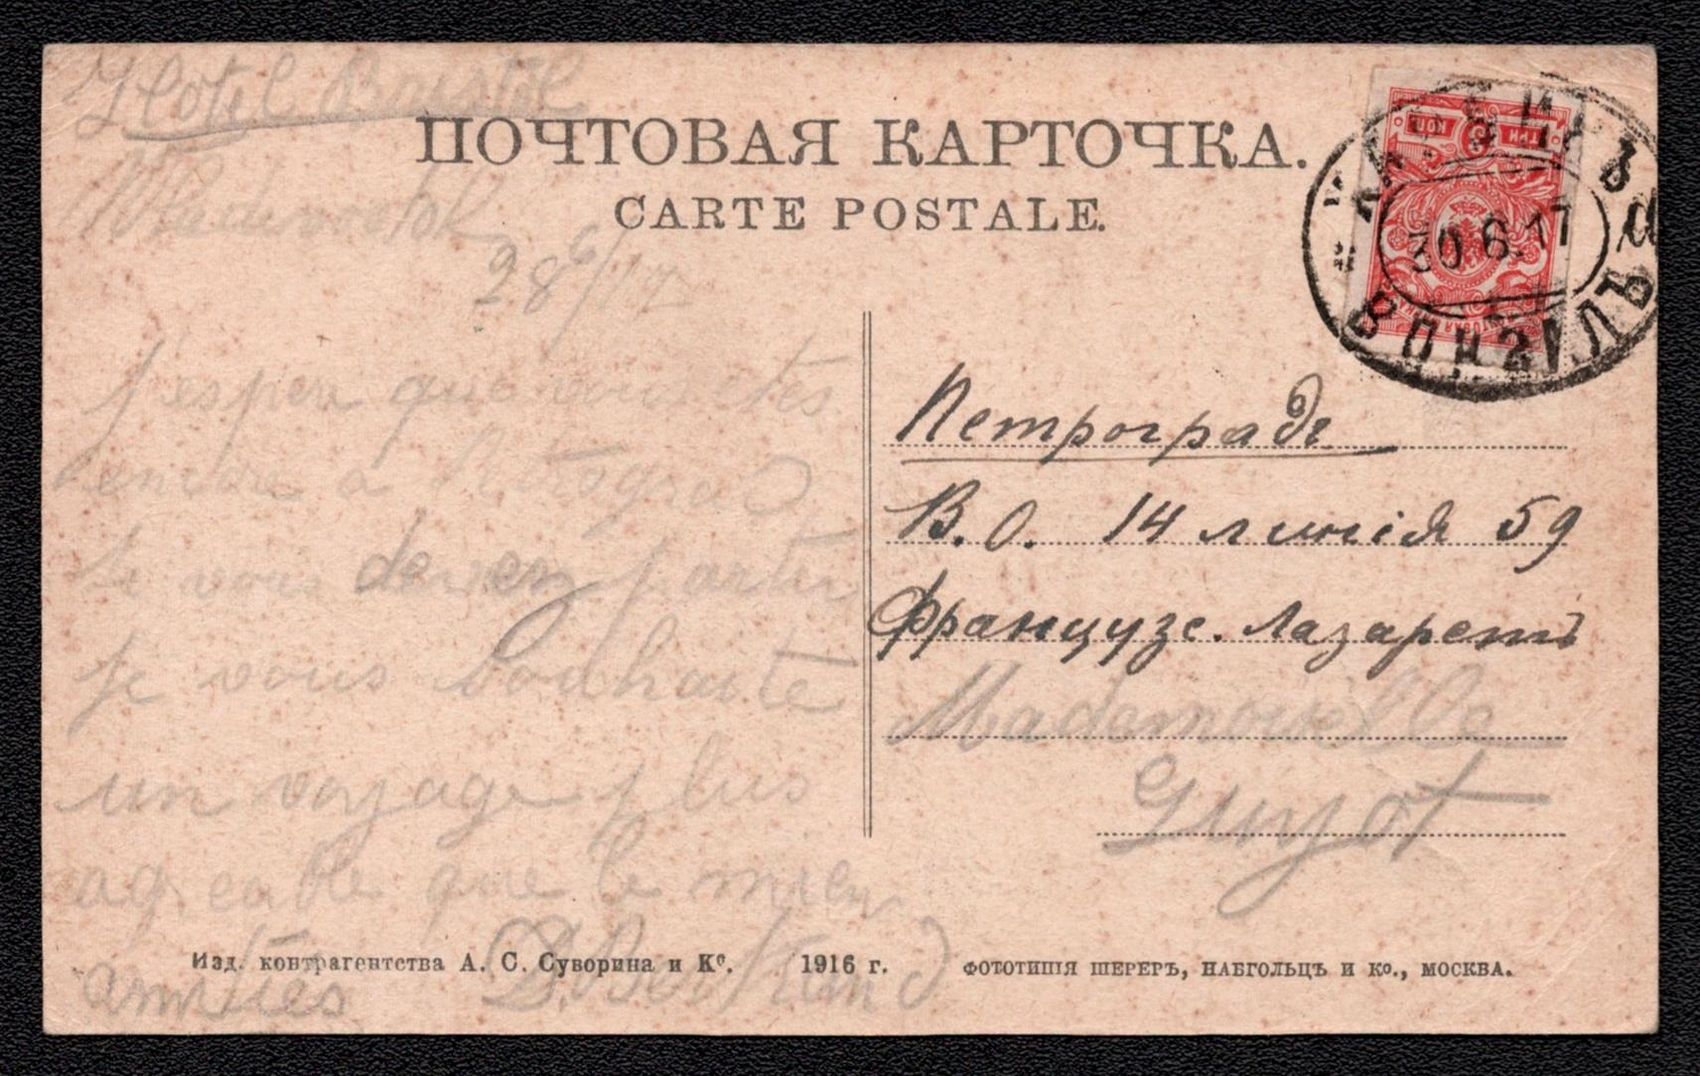 Hotel Bristol
Wladivostok
28 6/17
ПОЧТОВАЯ КАРТОЧКА.
CARTE POSTALE.
ТРИ 3 КОП
ХАРБИНЪ
30.6.17
ВОКЗАЛЪ
j'esper que vous etes
encore à Petrograd
si vous devez partir
je vous souhaite
un voyage plus
agreable que le mien
amitiés
Петроградъ
В. О. 14 линiя 59
Французс. Лазаретъ
Mademoiselle
Guyot
Изд. контрагентства А. С. Суворина и Кº. 1916 г.
ФОТОТИПІЯ ШЕРЕРЪ, НАБГОЛЬЦЪ И Ко., МОСКВА.